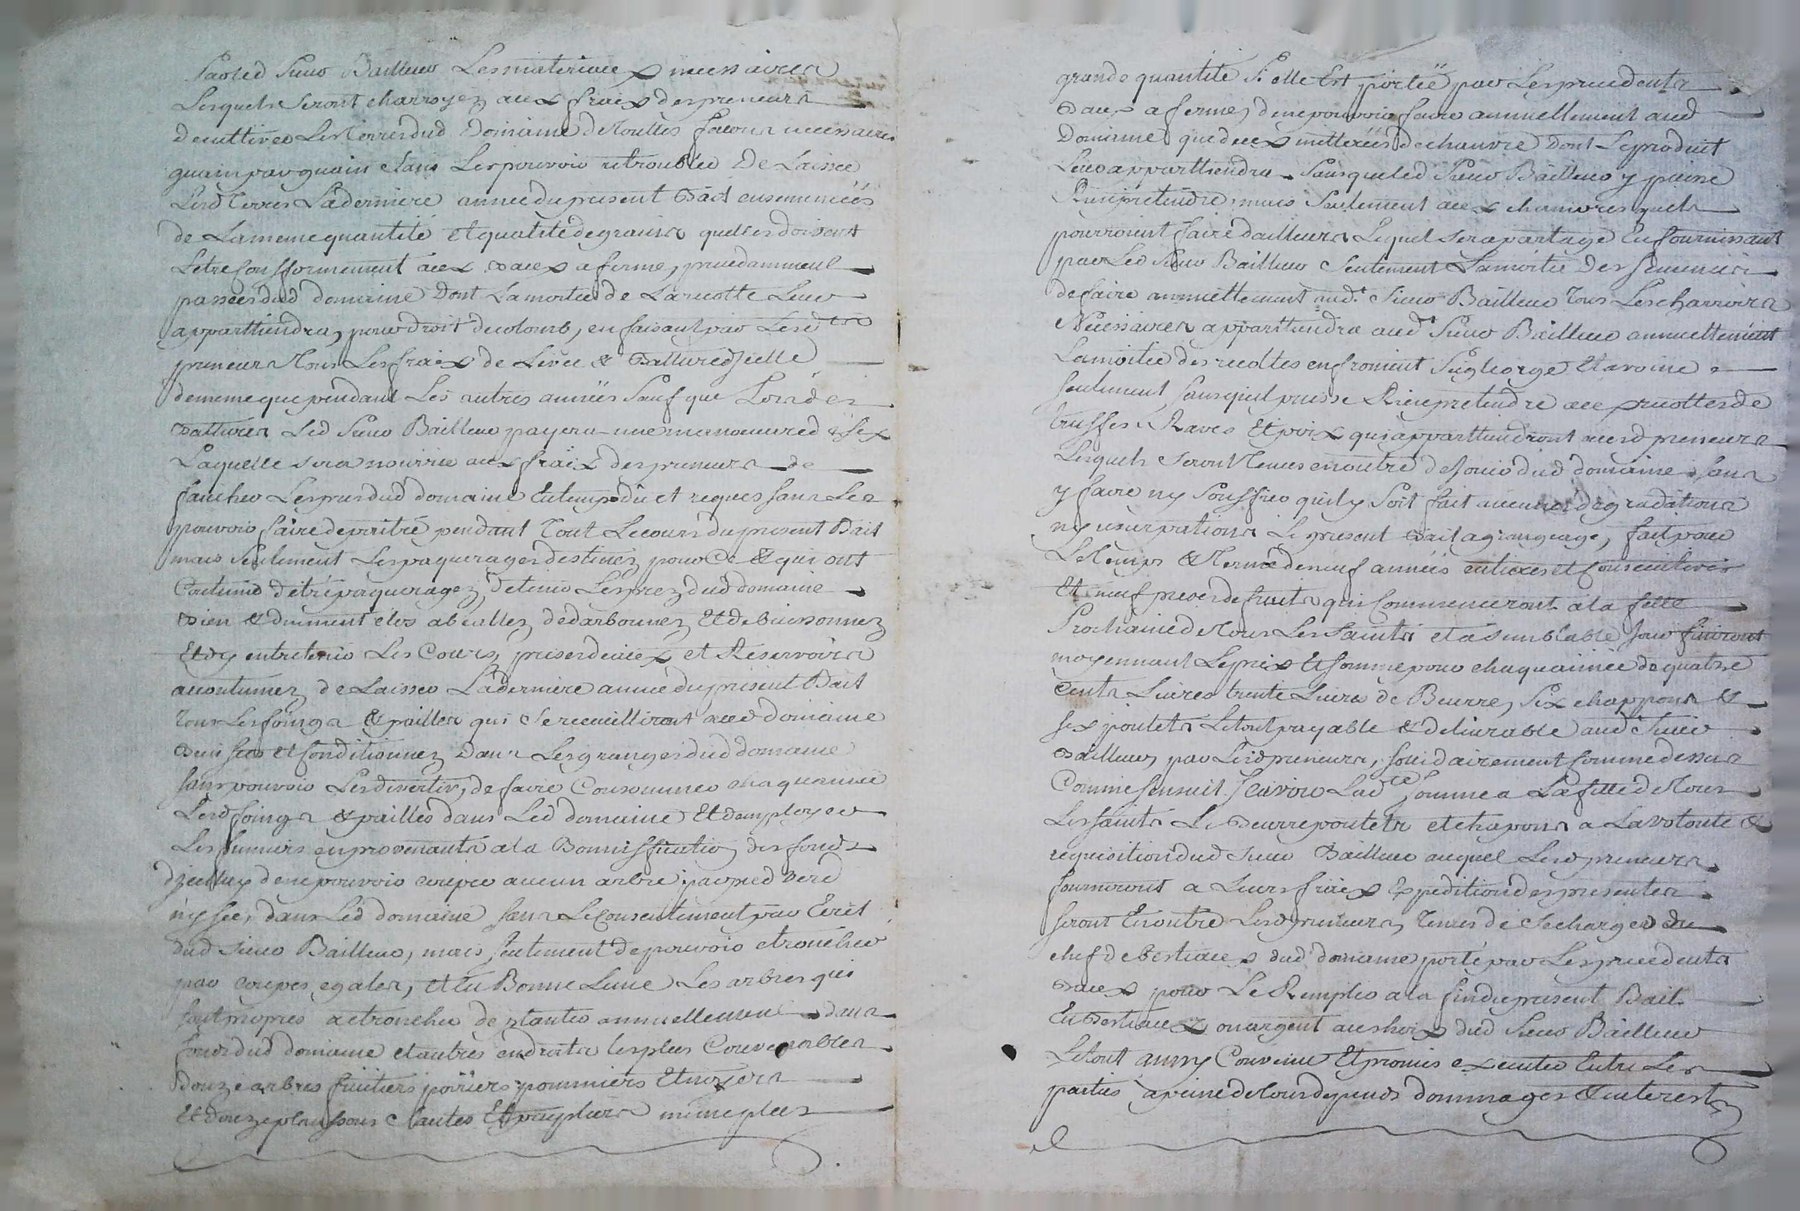 par led Sieur Bailleur Les materiaux necessaires
Lesquels seront charroyez aux fraix des preneurs
de cultiver Les terres dud Domaine de toutes facons necessaires
sans Les pouvoir retroubler De Laisser
Lesd terres La derniere année du present Bail ensemencées
de La meme quantité et qualité de grains quelles doivent
Letre Conformement aux Baux a ferme, precedamment
passées dud domaine Dont La moitié de La recolte Leur
appartiendra, pour droit de colomb, en faisant par Lesd
preneurs tous Les fraix de Levée & Batture dicelle
de meme que pendant Les autres années Sauf que Lors des
Battures Led Sieur Bailleur payera une manoeuvre
Laquelle sera nourrie aux fraix des preneurs de
faucher Les prés dud domaine En temps dû et requis sans Les
pouvoir faire depaitre pendant tout Le cours du present Bail
mais Seulement Les paquerages destinez pour Ce & qui ont
Coutume detre paqueragez, de tenir Les prez dud domaine
Bien & duement clos abeallez, dedarbonnez Et debuissonnez
Et dy entretenir Les Cours, prises deaux et Reservoirs
acoutumez de Laisser La derniere année du present Bail
tous Les foings & pailles qui Se recueilliront aud domaine
Bien secs et Conditionnez Dans Les granges dud domaine
sans pouvoir Les divertir, de faire Consommer chaque année
Lesd foings & pailles dans Led domaine Et demployer
Les fumiers en provenants a la Bonniffication des fonds
dicelluy de ne pouvoir couper aucun arbre par pied verd
ny sec, dans Led domaine sans Le Consentement par Ecrit
dud Sieur Bailleur, mais seulement de pouvoir etroncher
par coupes egales, et En Bonne Lune Les arbres qui
sont propres a etroncher de planter annuellement dans
fonds dud domaine et autres endroits les plus Convenables
Douze arbres fruitiers poiriers pommiers Et noyers
Et douze plansons & Saules Et peupliers meme plus
grande quantité Si elle Est portée par Les precedents
Baux a ferme, de ne pouvoir faire annuellement aud
Domaine que deux metterées de chanvre Dont Le produit
Leur appartiendra Sans que led Sieur Bailleur y puisse
Rien pretendre, mais Seulement aux chanvres quels
pourront faire dailleurs Lequel sera partagé En fournissant
par Led Sieur Bailleur Seulement La moitié Des semences
de faire annuellement aud. Sieur Bailleur tous Les charrois
Necessaires appartiendra aud Sieur Bailleur annuellement
La moitié des recoltes en froment Seigle orge Et avoine
Seulement Sans quil puisse Rien pretendre aux recoltes de
truffes Raves Et pois qui appartiendront auxd preneurs
Lesquels seront tenus en outre de jouir dud domaine sans
y faire ny Souffrir quil y Soit fait aucunes degradations
ny usurpations Le present Bail a grangeage, fait pour
Le temps & terme de neuf années entieres et Consecutives
Et neuf prises de fruits qui Commenceront a la fette
Prochaine de tous Les saints et a semblable jour finiront
moyennant Le prix Et somme pour chaque année de quatre
cents Livres trente Livres de Beurre, Six chappons &
six poulets Le tout payable & delivrable aud Sieur
Bailleur par Lesd preneurs, solidairement Comme dessus
Comme sensuit scavoir Lad.te somme a La fette de tous
Les saints Le Beurre poulets et chapons a La volonté &
requisition dud Sieur Bailleur auquel Lesd preneurs
fourniront a Leurs fraix Expedition des presentes
seront En outre Lesd preneurs, tenus de Se charger du
chef de bestiaux dud domaine porté par Les precedents
Baux pour Le Remplir a la fin du present Bail
En Bestiaux ou argent au choix dud Sieur Bailleur
Le tout ainsy Convenu Et promis executer Entre Les
parties a peine de tous depends dommages & interests